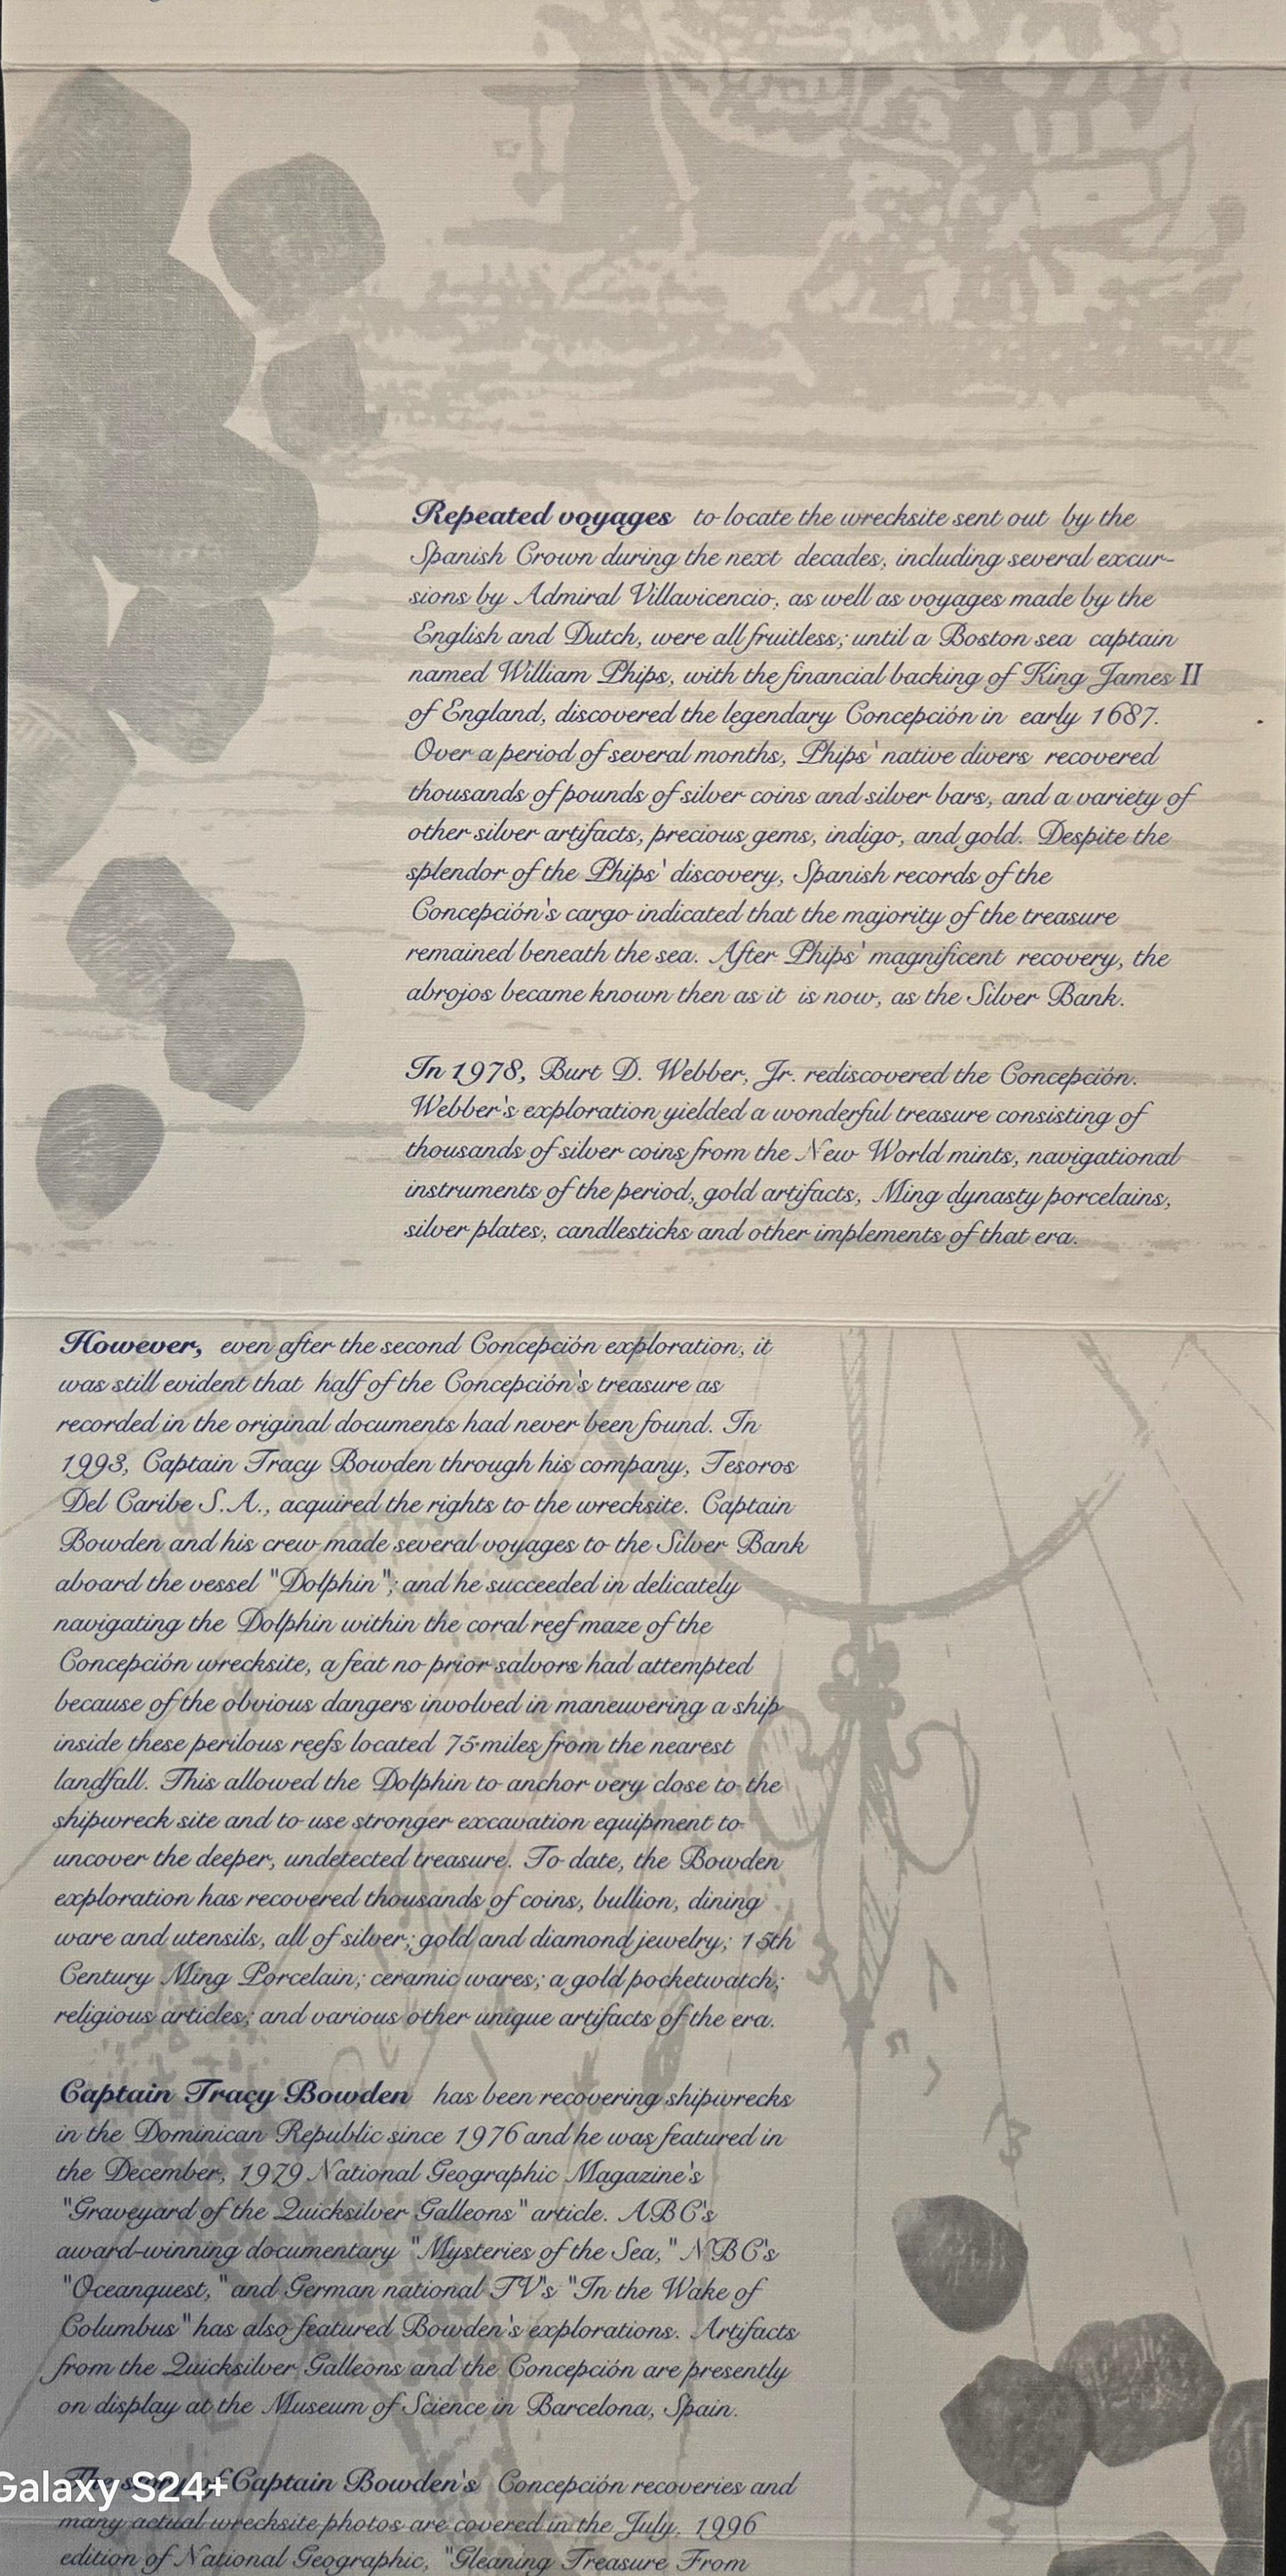 Repeated voyages to locate the wrecksite sent out by the
Spanish Crown during the next decades, including several excur-
sions by Admiral Villavicencio, as well as voyages made by the
English and Dutch, were all fruitless; until a Boston sea captain
named William Phips, with the financial backing of King James II
of England, discovered the legendary Concepción in early 1687.
Over a period of several months, Phips' native divers recovered
thousands of pounds of silver coins and silver bars, and a variety of
other silver artifacts, precious gems, indigo, and gold. Despite the
splendor of the Phips' discovery, Spanish records of the
Concepción's cargo indicated that the majority of the treasure
remained beneath the sea. After Phips' magnificent recovery, the
abrojos became known then as it is now, as the Silver Bank.
In 1978, Burt D. Webber, Jr. rediscovered the Concepción.
Webber's exploration yielded a wonderful treasure consisting of
thousands of silver coins from the New World mints, navigational
instruments of the period, gold artifacts, Ming dynasty porcelains,
silver plates, candlesticks and other implements of that era.
However, even after the second Concepción exploration, it
was still evident that half of the Concepción's treasure as
recorded in the original documents had never been found. In
1993, Captain Tracy Bowden through his company, Tesoros
Del Caribe S.A., acquired the rights to the wrecksite. Captain
Bowden and his crew made several voyages to the Silver Bank
aboard the vessel "Dolphin"; and he succeeded in delicately
navigating the Dolphin within the coral reef maze of the
Concepción wrecksite, a feat no prior salvors had attempted
because of the obvious dangers involved in maneuvering a ship
inside these perilous reefs located 75 miles from the nearest
landfall. This allowed the Dolphin to anchor very close to the
shipwreck site and to use stronger excavation equipment to
uncover the deeper, undetected treasure. To date, the Bowden
exploration has recovered thousands of coins, bullion, dining
ware and utensils, all of silver; gold and diamond jewelry; 15th
Century Ming Porcelain; ceramic wares; a gold pocketwatch;
religious articles; and various other unique artifacts of the era.
Captain Tracy Bowden has been recovering shipwrecks
in the Dominican Republic since 1976 and he was featured in
the December, 1979 National Geographic Magazine's
"Graveyard of the Quicksilver Galleons" article. ABC's
award-winning documentary "Mysteries of the Sea," NBC's
"Oceanquest," and German national TV's "In the Wake of
Columbus" has also featured Bowden's explorations. Artifacts
from the Quicksilver Galleons and the Concepción are presently
on display at the Museum of Science in Barcelona, Spain.
The story of Captain Bowden's Concepción recoveries and
Galaxy S24+
many actual wrecksite photos are covered in the July, 1996
edition of National Geographic, "Gleaning Treasure From